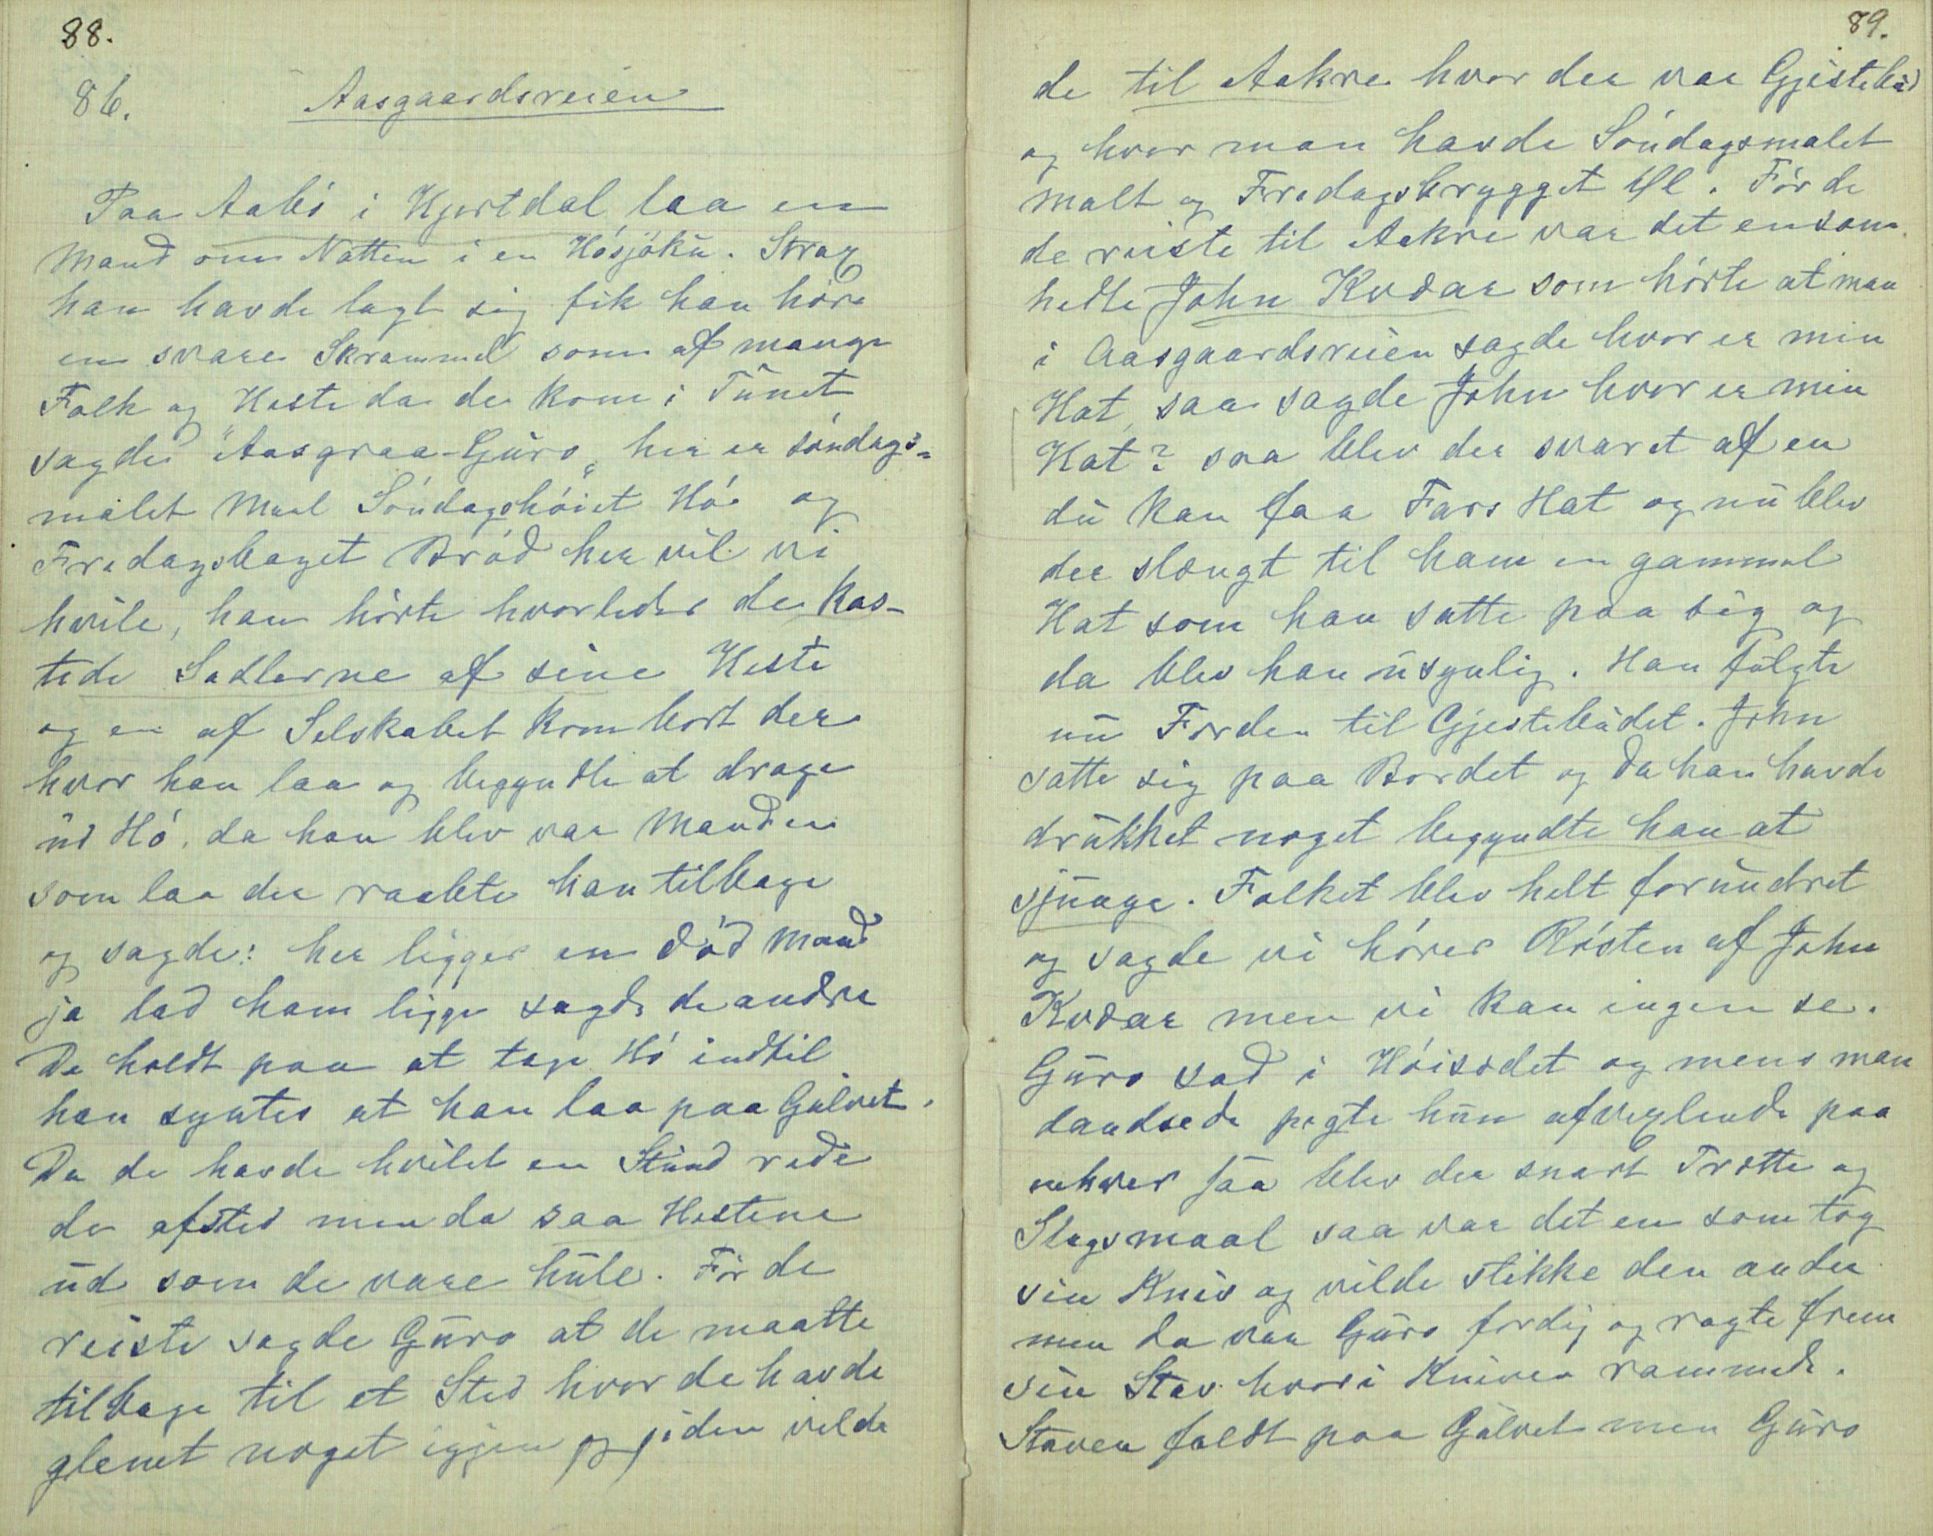 88.
86. Aasgaardsreien
Paa Aabö i Hjertdal laa en
Mand om Natten i en Hösjöku. Strax
han havde lagt sig fik han höre
en svare Skrammel som af mange
Folk og Heste da de kom i Tunet
sagde "Aasgraa-Guro" her er söndags-
malet Maal Söndagshöiet Hö og
Fredagsbaget Bröd her vil vi
hvile, han hörte hvorledes de kas-
tede Sadlerne af sine Heste
og en af Selskabet kom bort der
hvor han laa og begyndte at drage
ud Hö, da han blev var Manden
som laa der raabte han tilbage
og sagde: her ligger en död Mand
ja lad ham ligge sagde de andre
De holdt paa at tage Hö indtil
han syntes at han laa paa Gulvet.
Da de havde hvilet en Stund rede
de afsted men da saa Hestene
ud som de vare hule. För de
reiste sagde Guro at de maatte
tilbage til et Sted hvor de havde
glemt noget igjen og siden vilde
89.
de til Aakre hvor der var Gjestebud
og hvor man havde Söndagsmalet
Malt og Fredagsbrygget Øl. För de
de reiste til Aakre var det en som
hedte John Kvdar som hörte at man
i Aasgaardsreien sagde hvor er min
Hat, saa sagde John hvor er min
Hat? saa blev der svaret af en
du kan faa Fars Hat og nu blev
der slængt til ham en gammel
Hat som han satte paa sig og
da blev han usynlig. Han fulgte
nu Færden til Gjestebudet. John
satte sig paa Bordet og da han havde
drukket noget begyndte han at
sjunge. Folket blev helt forundret
og sagde vi hörer Rösten af John
Kvdar men vi kan ingen se.
Guro sad i Höisædet og mens man
dandsede pegte hun afvexlende paa
enhver saa blev der snart Trætte og
Slagsmaal saa var det en som tog
sin Kniv og vilde stikke den anden
men da var Guro færdig og ragte frem
sin Stav hvori Kniven rammede.
Staven faldt paa Gulvet men Guro